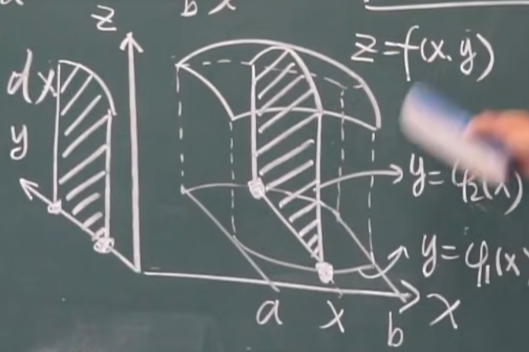 z
z=f(x,y)
dx
y
y=φ₂(x)
y=φ₁(x)
a x b x